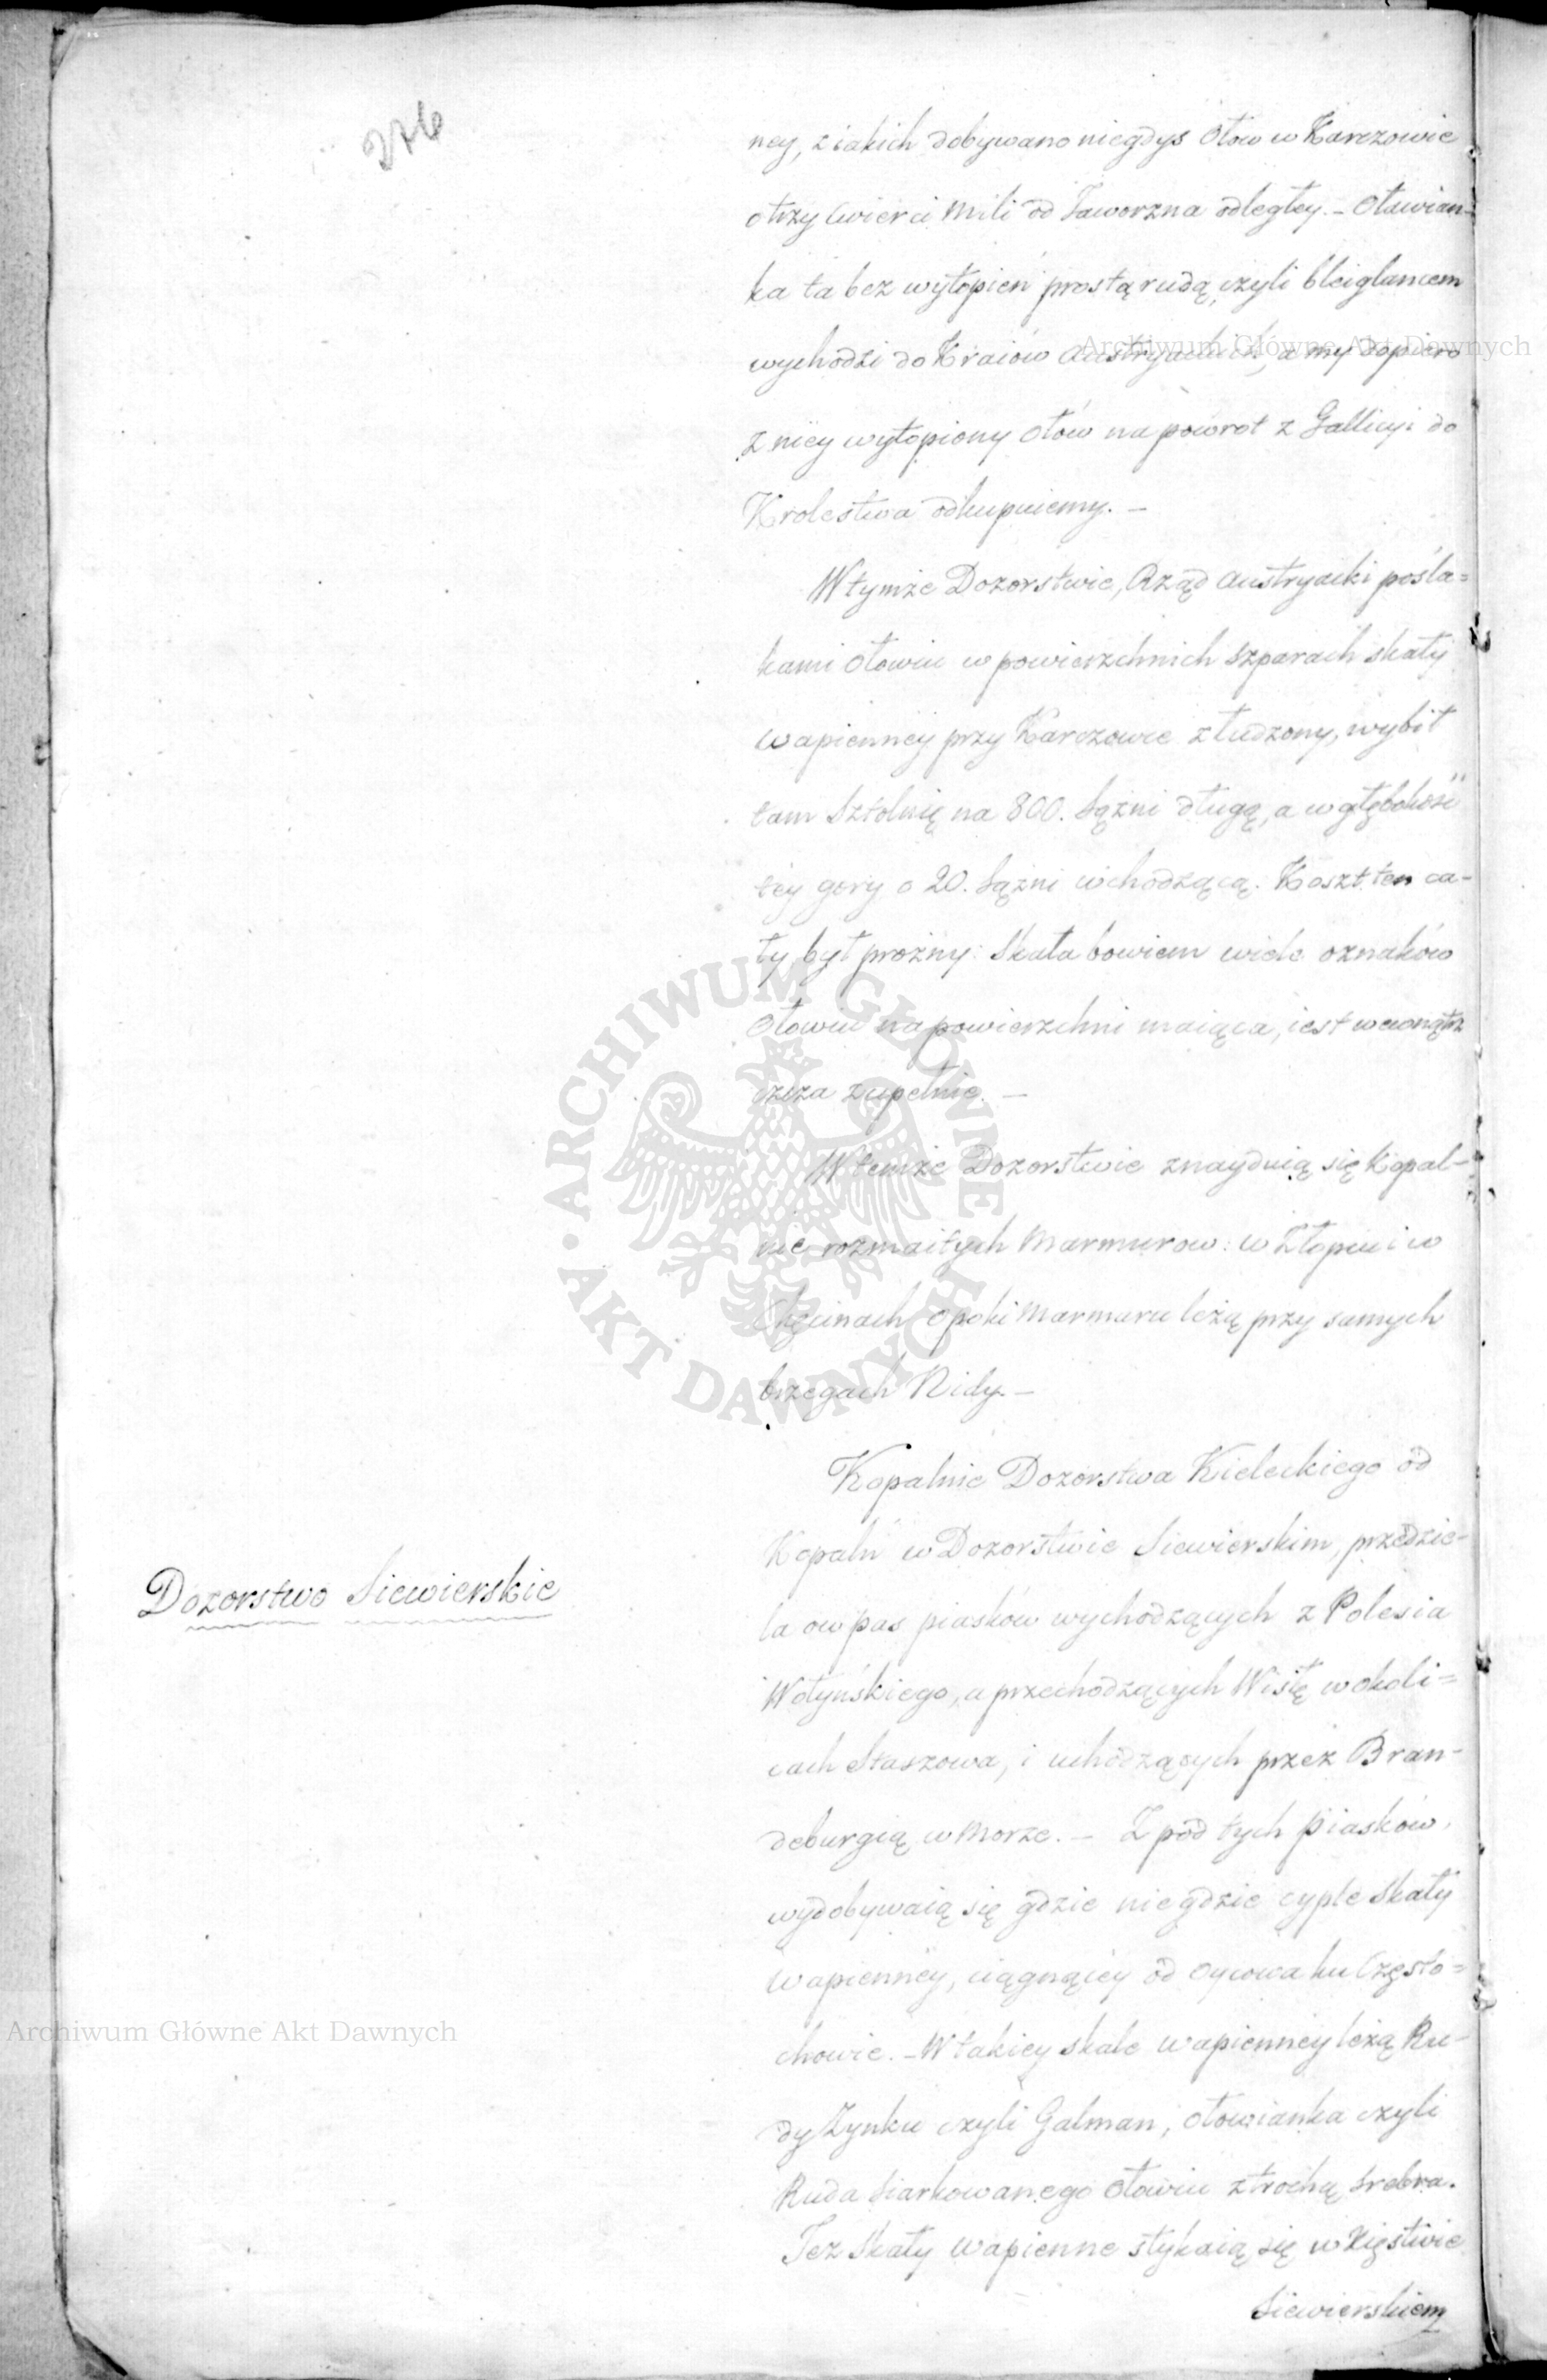 276
ney, z iakich dobywano niegdys Ołow w Karczowie
o trzy cwierci Mili od Jaworzna odległey. – Ołowian-
ka ta bez wytopień prostą rudą, czyli bleiglancem
wychodzi do Kraiów Austryackich, a my dopiero
z niéy wytopiony Ołów na powrot z Gallicyi do
Krolestwa odkupuiemy. –
W tymże Dozorstwie, Rząd Austryacki pośla=
kami Ołowiu w powierzchnich szparach skały
wapiennéy przy Karczowie złudzony, wybił
tam Sztolnię na 800. Sążni długą, a w głębokość
téy gory o 20. Sążni wchodzącą. Koszt ten ca-
ły był prożny: Skała bowiem wiele oznaków
Ołowiu na powierzchni maiąca, iest wewnątrz
czcza zupełnie. –
W temże Dozorstwie znayduią się Kopal-
nie rozmaitych Marmurow: w Złopiu i w
Chęcinach opoki Marmuru leżą przy samych
brzegach Nidy. –
Kopalnie Dozorstwa Kieleckiego od
Dozorstwo Siewierskie
Kopalń w Dozorstwie Siewierskim, przedzie-
la ow pas piasków wychodzących z Polesia
Wołyńskiego, a przechodzących Wisłę w okoli=
cach Staszowa, i uchodzących przez Bran-
deburgią w Morze. – Z pod tych piasków,
wydobywaią się gdzie niegdzie cyple Skały
wapiennéy, ciągnącéy od Oycowa ku Często=
chowie. – W takiey skale wapiennéy leżą Ru-
dy Zynku czyli Galman, Ołowianka czyli
Ruda Siarkowanego Ołowiu z trochą srebra.
Też Skały wapienne stykaią się w Xięstwie
Siewierskiem
Archiwum Główne Akt Dawnych
Archiwum Główne Akt Dawnych
ARCHIWUM GŁÓWNE • AKT DAWNYCH